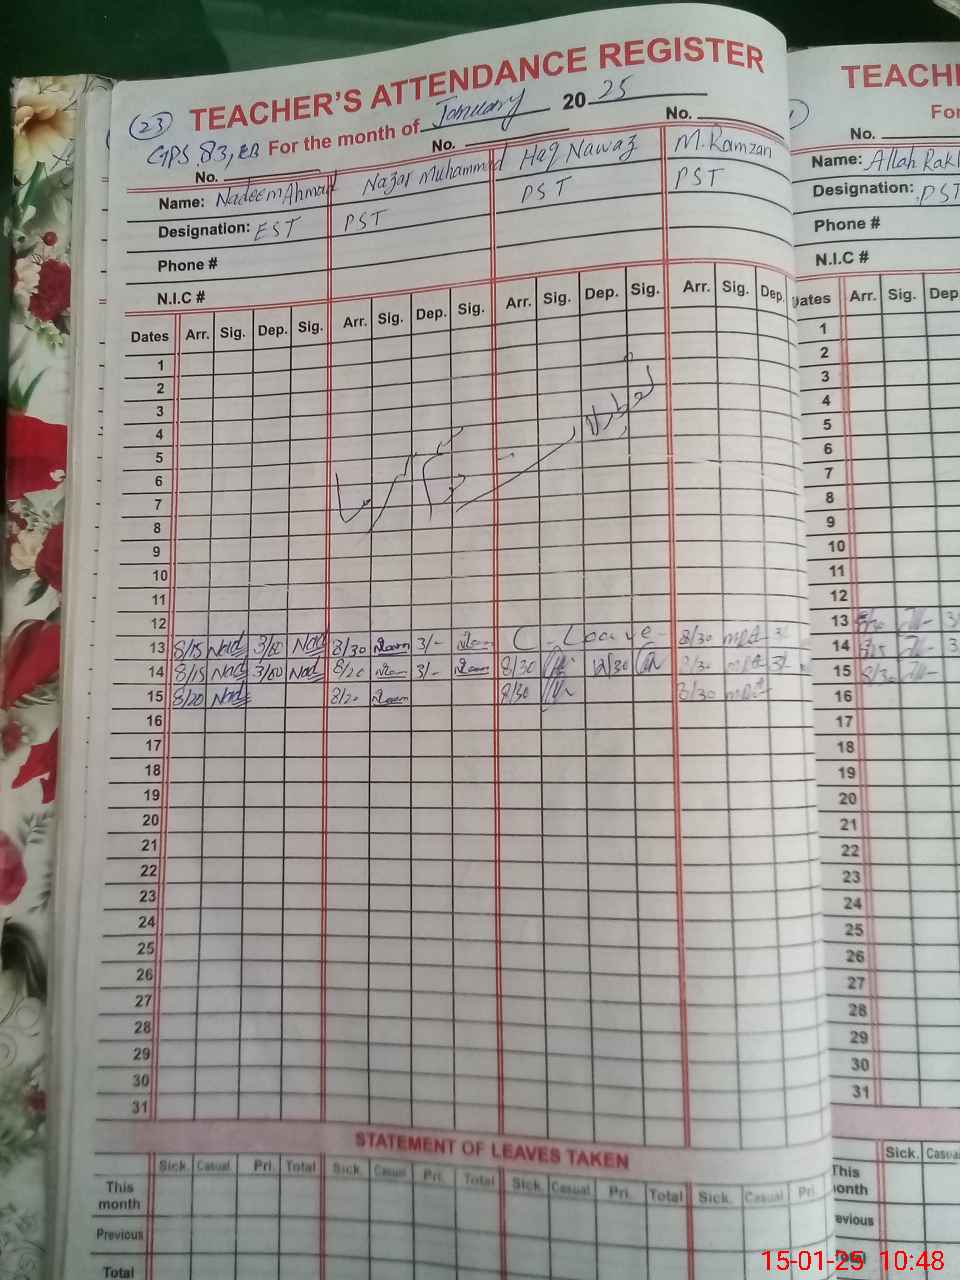 (23) TEACHER'S ATTENDANCE REGISTER
GPS 83, EB For the month of January 2025
No. No. No.
Name: Nadeem Ahmad Nazar Muhammad Haq Nawaz M. Ramzan
Designation: EST PST PST PST
Phone #
N.I.C #
Dates Arr. Sig. Dep. Sig. Arr. Sig. Dep. Sig. Arr. Sig. Dep. Sig. Arr. Sig. Dep.
1
2
3
4
5
6
7
8
9
10
11
12
13 8/15 Nad 3/00 Nad 8/30 3/- C - Leave - 8/30 3/-
14 8/15 Nad 3/00 Nad 8/20 3/- 8/30 12/30 8/30 3/-
15 8/20 Nad 8/20 8/30 8/30
16
17
18
19
20
21
22
23
24
25
26
27
28
29
30
31
STATEMENT OF LEAVES TAKEN
Sick. Casual Pri. Total Sick. Casual Pri. Total Sick. Casual Pri. Total Sick. Casual Pri.
This month
Previous
Total
TEACH
For
No.
Name: Allah Rak
Designation: PST
Phone #
N.I.C #
Dates Arr. Sig. Dep
1
2
3
4
5
6
7
8
9
10
11
12
13
14
15 8/30
16
17
18
19
20
21
22
23
24
25
26
27
28
29
30
31
Sick. Casual
This month
evious
Total
15-01-25 10:48